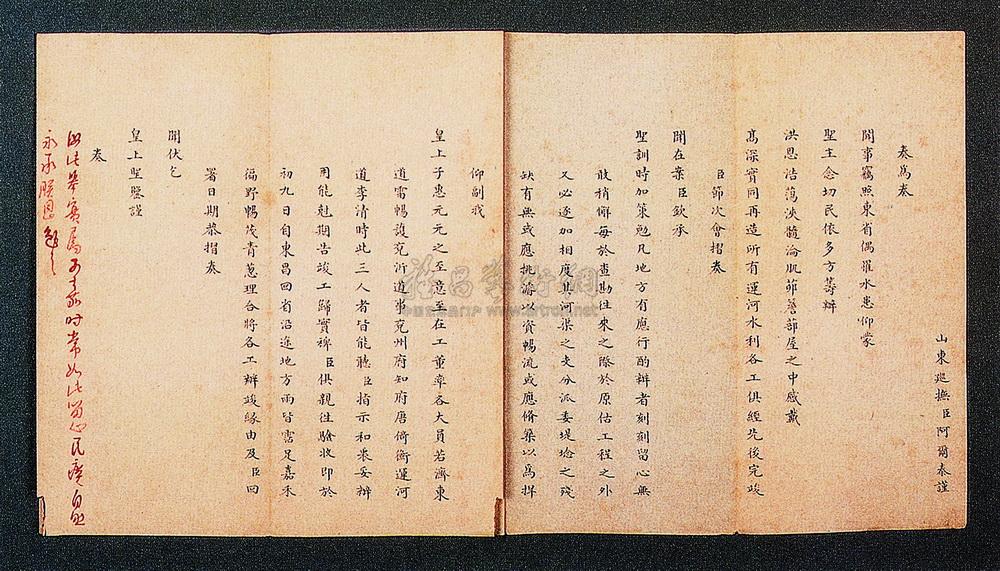 山東巡撫臣阿爾泰謹
奏爲奏
聞事竊照東省偶罹水患仰蒙
聖主念切民依多方籌辦
洪恩浩蕩浹髓淪肌蔀簷蔀屋之中感戴
高深實同再造所有運河水利各工俱經先後完竣
臣節次會摺奏
聞在案臣欽承
聖訓時加策勉凡地方有應行酌辦者刻刻留心無
敢稍懈每於查勘往來之際於原估工程之外
又必逐加相度其河渠之支分派委堤埝之殘
缺有無或應挑濬以資暢流或應脩築以爲捍
仰副我
皇上子惠元元之至意至在工董率各大員若濟東
道雷暢護兗沂道事兗州府知府唐倚衡運河
道李清時此三人者皆能聽臣指示和衷妥辦
用能剋期告竣工歸實裨臣俱親往驗收即於
初九日自東昌回省沿途地方雨皆霑足嘉禾
徧野暢茂青葱理合將各工辦竣緣由及臣回
署日期恭摺奏
聞伏乞
皇上聖鑒謹
奏
汝此舉實屬可嘉時常如此留心民瘼自
永承朕恩勉之